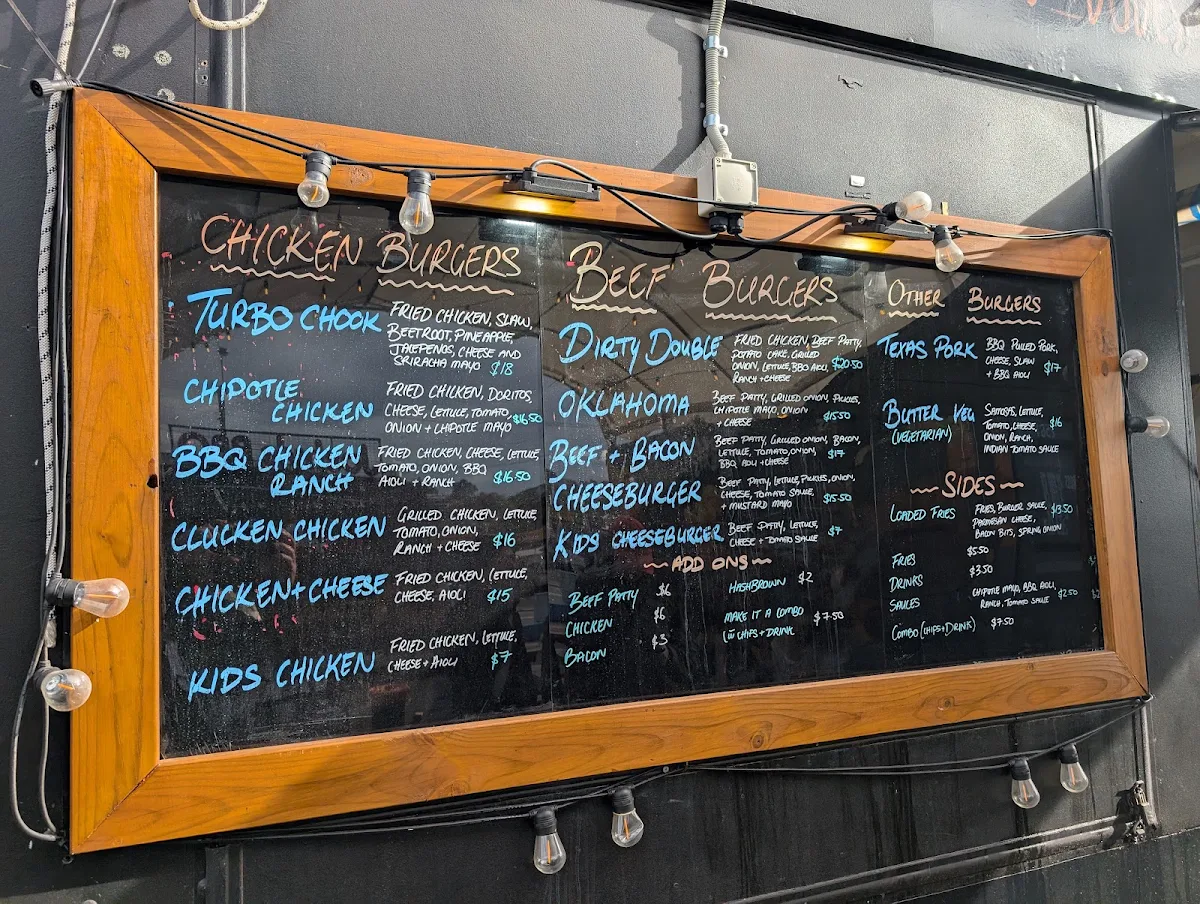 CHICKEN BURGERS
TURBO CHOOK
FRIED CHICKEN, SLAW,
BEETROOT, PINEAPPLE,
JALEPENOS, CHEESE AND
SRIRACHA MAYO $18
CHIPOTLE
CHICKEN
FRIED CHICKEN, DORITOS,
CHEESE, LETTUCE, TOMATO,
ONION + CHIPOTLE MAYO $16.50
BBQ CHICKEN
RANCH
FRIED CHICKEN, CHEESE, LETTUCE,
TOMATO, ONION, BBQ
AIOLI + RANCH $16.50
CLUCKEN CHICKEN
GRILLED CHICKEN, LETTUCE,
TOMATO, ONION,
RANCH + CHEESE $16
CHICKEN+CHEESE
FRIED CHICKEN, LETTUCE,
CHEESE, AIOLI $15
KIDS CHICKEN
FRIED CHICKEN, LETTUCE,
CHEESE + AIOLI $7
BEEF BURGERS
DIRTY DOUBLE
FRIED CHICKEN, BEEF PATTY,
POTATO CAKE, GRILLED
ONION, LETTUCE, BBQ AIOLI, $20.50
RANCH + CHEESE
OKLAHOMA
BEEF PATTY, GRILLED ONION, PICKLES,
CHIPOTLE MAYO, ONION $15.50
+ CHEESE
BEEF + BACON
BEEF PATTY, GRILLED ONION, BACON,
LETTUCE, TOMATO, ONION, $17
BBQ AIOLI + CHEESE
CHEESEBURGER
BEEF PATTY, LETTUCE, PICKLES, ONION,
CHEESE, TOMATO SAUCE, $15.50
+ MUSTARD MAYO
KIDS CHEESEBURGER
BEEF PATTY, LETTUCE, $7
CHEESE + TOMATO SAUCE
ADD ONS
BEEF PATTY $6
CHICKEN $6
BACON $3
HASHBROWN $2
MAKE IT A COMBO $7.50
(W CHIPS + DRINK
OTHER BURGERS
TEXAS PORK
BBQ PULLED PORK,
CHEESE, SLAW $17
+ BBQ AIOLI
BUTTER VEG
(VEGETARIAN)
SAMOSAS, LETTUCE,
TOMATO, CHEESE, $16
ONION, RANCH,
INDIAN TOMATO SAUCE
SIDES
LOADED FRIES
FRIES, BURGER SAUCE, $13.50
PARMESAN CHEESE,
BACON BITS, SPRING ONION
FRIES $5.50
DRINKS $3.50
SAUCES
CHIPOTLE MAYO, BBQ AIOLI,
RANCH, TOMATO SAUCE $2.50
COMBO (CHIPS+DRINK) $7.50